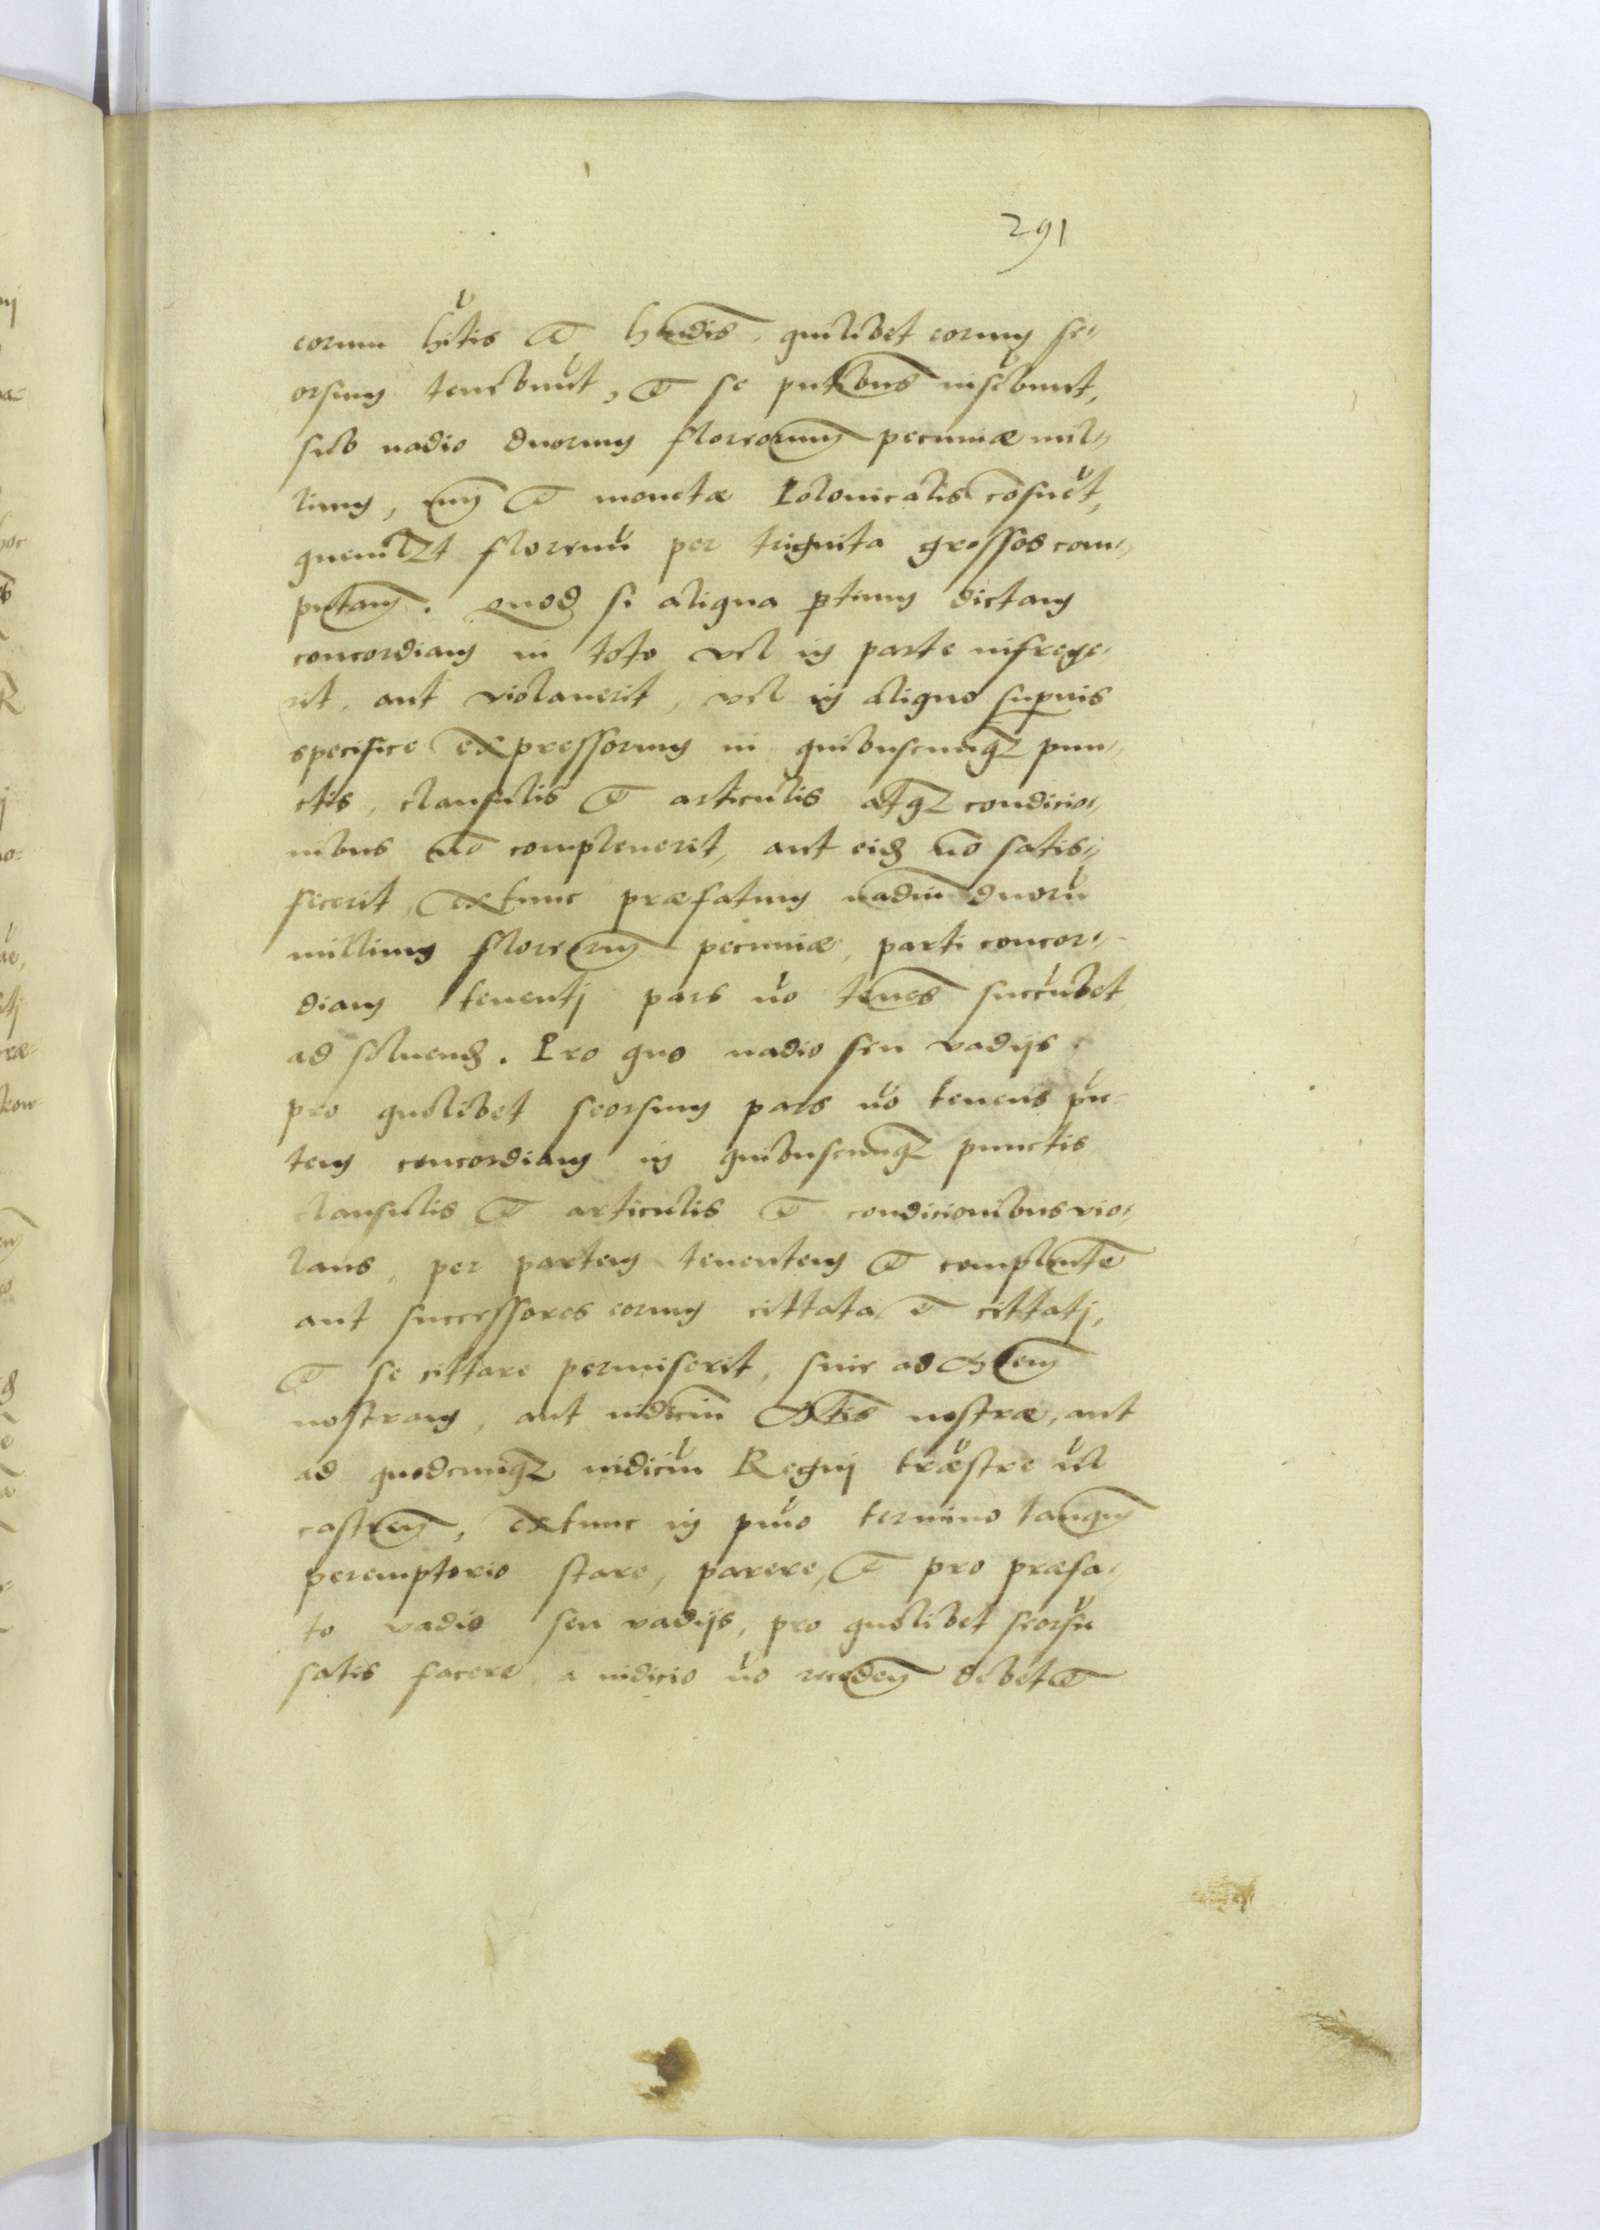 291
eorum hitis et hndis, quilibet eorum se=
orsum tenebunt, et se pntibus inscribunt,
sub vadio duorum florenorum pecuniae mil=
lium, num et monetae Polonicalis consuet,
quemlzt florenu per triginta grossos com=
putam. Quod si aliqua ptium dictam
concordiam in toto vel in parte infrege=
rit, aut violaverit, vel in aliquo supius
specifice expressorum in quibuscunqz pun=
ctis, clausulis et articulis atqz condicio=
nibus no compleverit, aut eid no satis=
fecerit, extunc praefatum vadiu duoru
millium florenorum pecuniae, parti concor=
diam tenentj pars no tenes succubet
ad solvend. Pro quo vadio seu vadijs
pro quolibet seorsum pars no tenens pn=
tem concordiam in quibuscunqz punctis
clausulis et articulis et condicionibus vio=
lans, per partem tenentem et complente
aut successores eorum cittata et cittatj,
et se cittare permiserit, sive ad Mtem
nostram, aut iudiciu Mtis nostrae, aut
ad quodcunqz iudiciu Regnj traestre vl
castrem, extunc in pmo termino tanqm
peremptorio stare, parere, et pro praefa=
to vadio seu vadijs, pro quolibet seorsu
satis facere a iudicio no recedem debet et